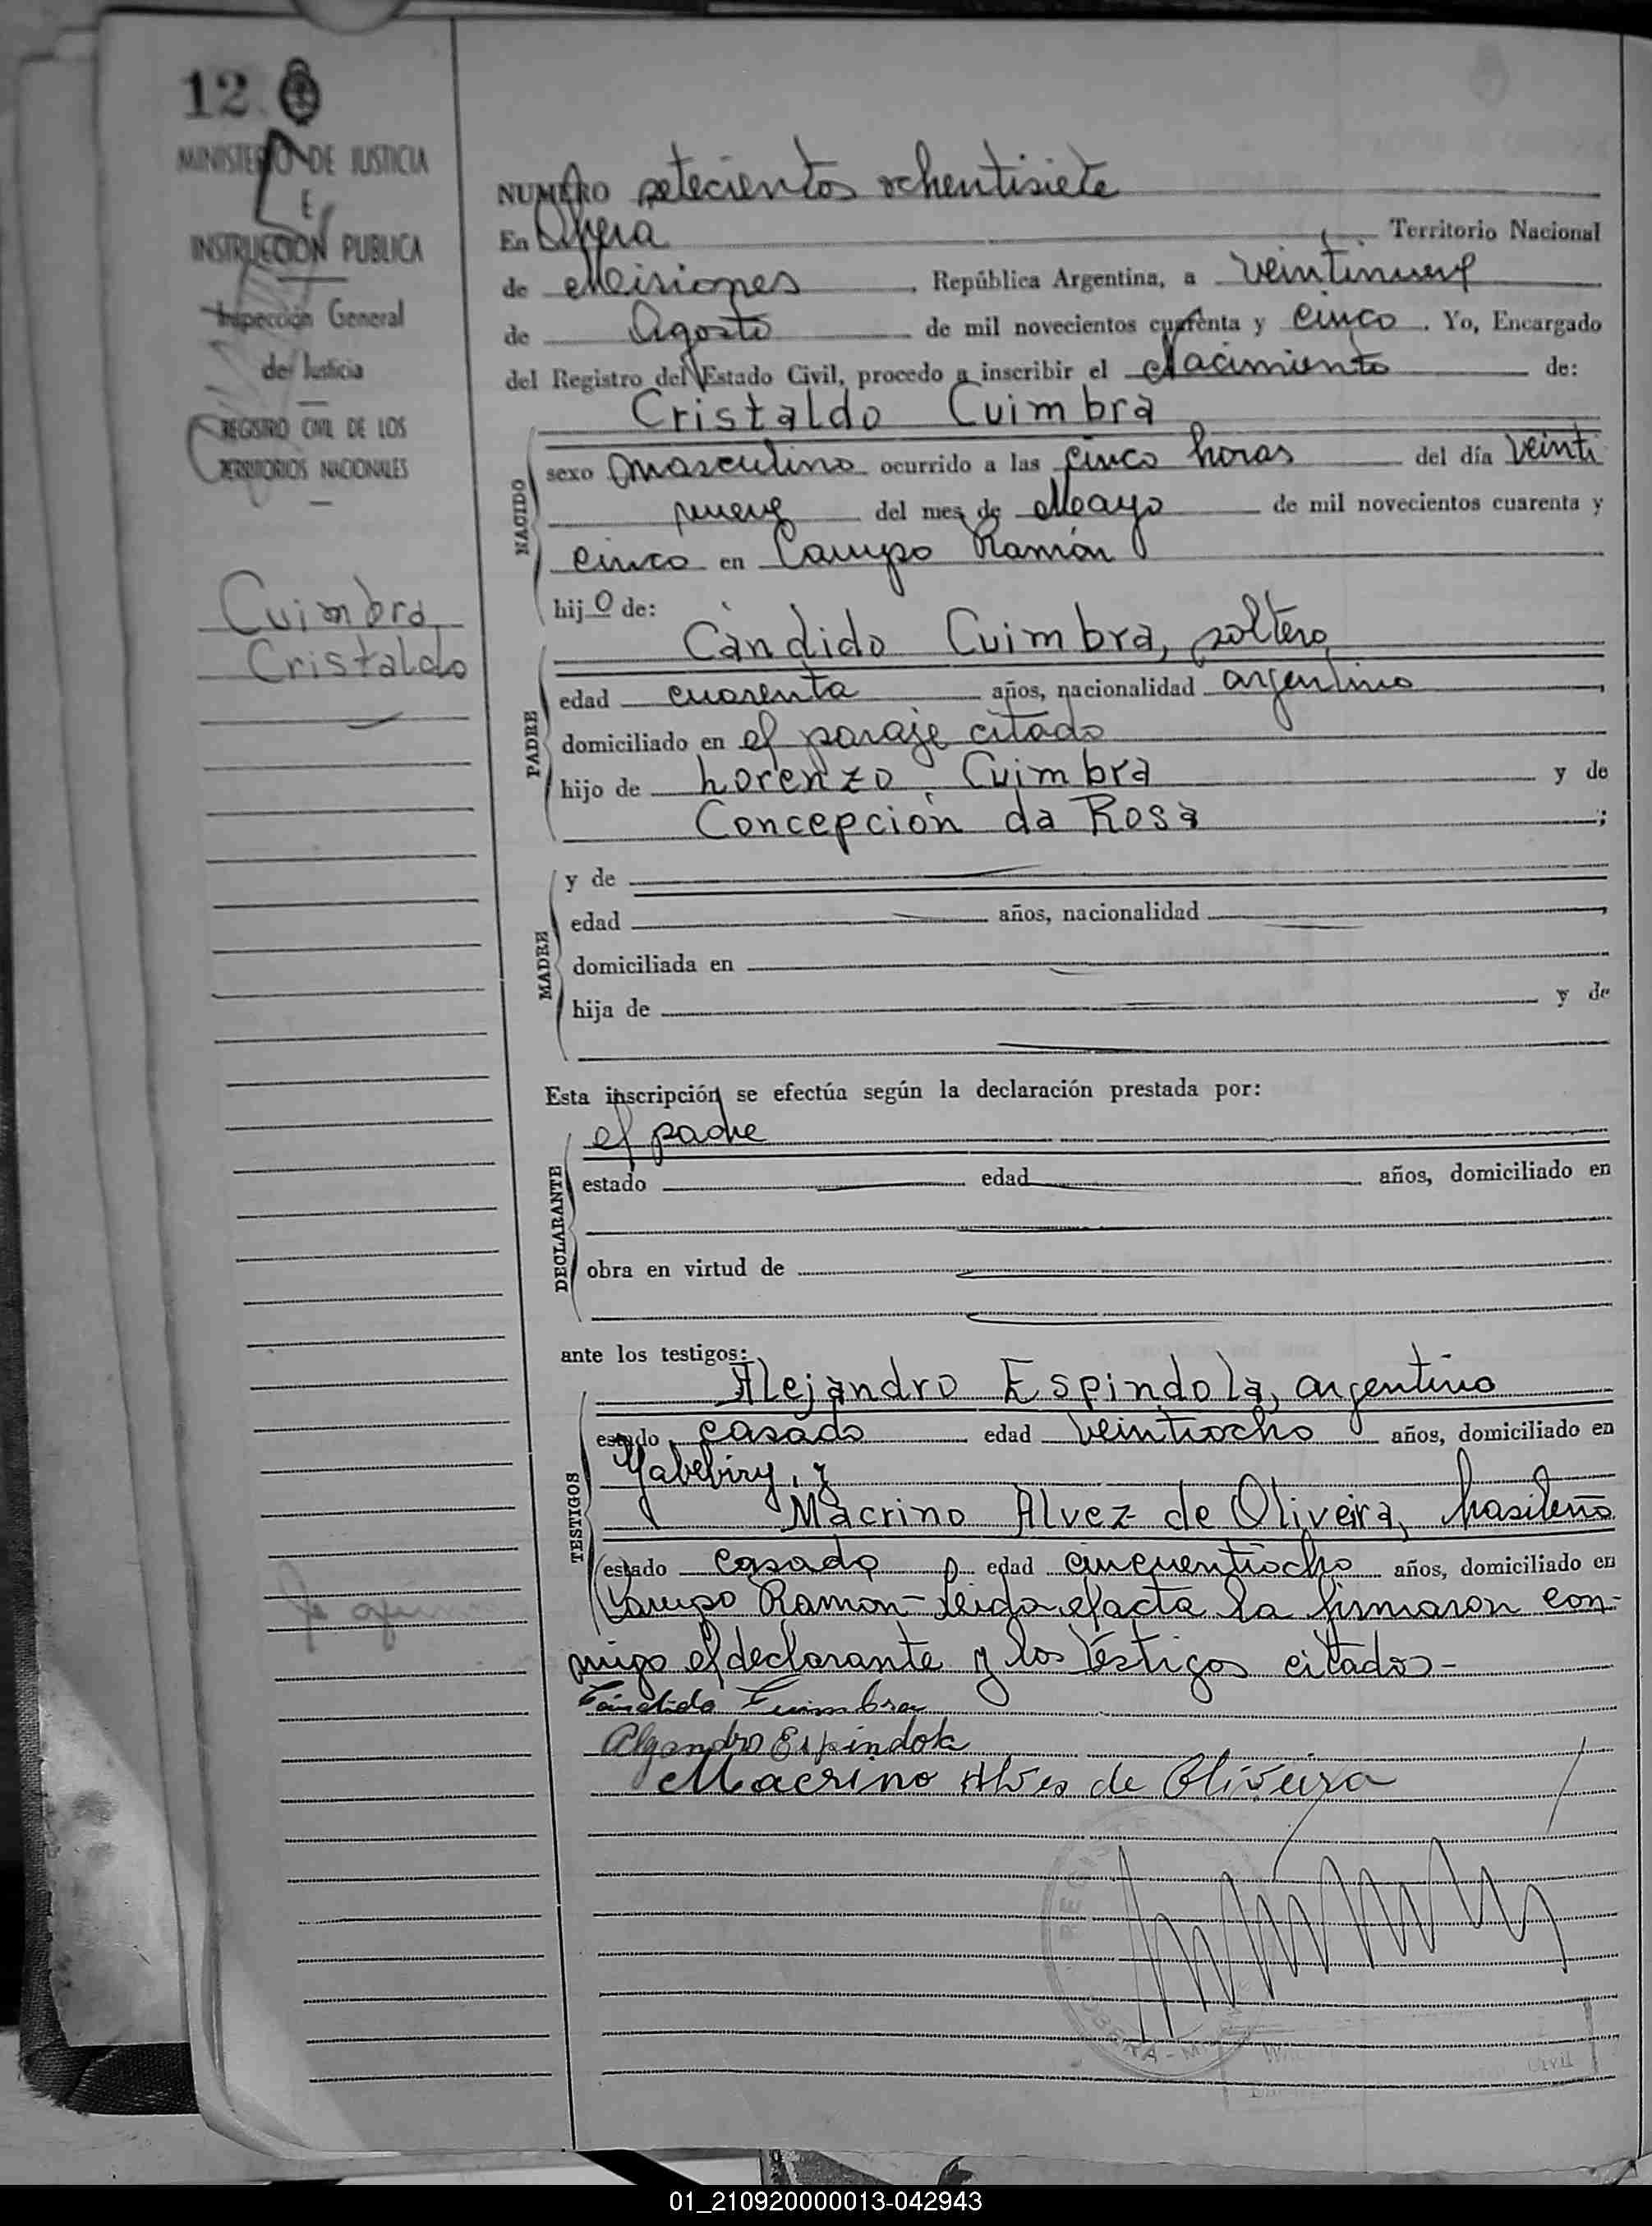 12
MINISTERIO DE JUSTICIA
E
INSTRUCCION PUBLICA
Inspección General
de Justicia
REGISTRO CIVIL DE LOS
TERRITORIOS NACIONALES
Cuimbra
Cristaldo
NUMERO setecientos ochentisiete
En Obera, Territorio Nacional
de Misiones, República Argentina, a veintinueve
de Agosto de mil novecientos cuarenta y cinco. Yo, Encargado
del Registro del Estado Civil, procedo a inscribir el Nacimiento de:
Cristaldo Cuimbra
NACIDO
sexo masculino ocurrido a las cinco horas del día veinti
nueve del mes de Mayo de mil novecientos cuarenta y
cinco en Campo Ramón
hijo de:
Cándido Cuimbra, soltero
PADRE
edad cuarenta años, nacionalidad argentino,
domiciliado en el paraje citado
hijo de Lorenzo Cuimbra y de
Concepción da Rosa;
MADRE
y de
edad años, nacionalidad,
domiciliada en
hija de y de
Esta inscripción se efectúa según la declaración prestada por:
el padre
DECLARANTE
estado edad años, domiciliado en
obra en virtud de
ante los testigos:
Alejandro Espindola, argentino
TESTIGOS
estado casado edad veintiocho años, domiciliado en
Yabebiry, y
Macrino Alvez de Oliveira, brasileño
estado casado edad cincuentiocho años, domiciliado en
Campo Ramon - Leida el acta la firmaron con-
migo el declarante y los testigos citados-
Cándido Cuimbra
Alejandro Espindola
Macrino Alves de Oliveira
01_210920000013-042943